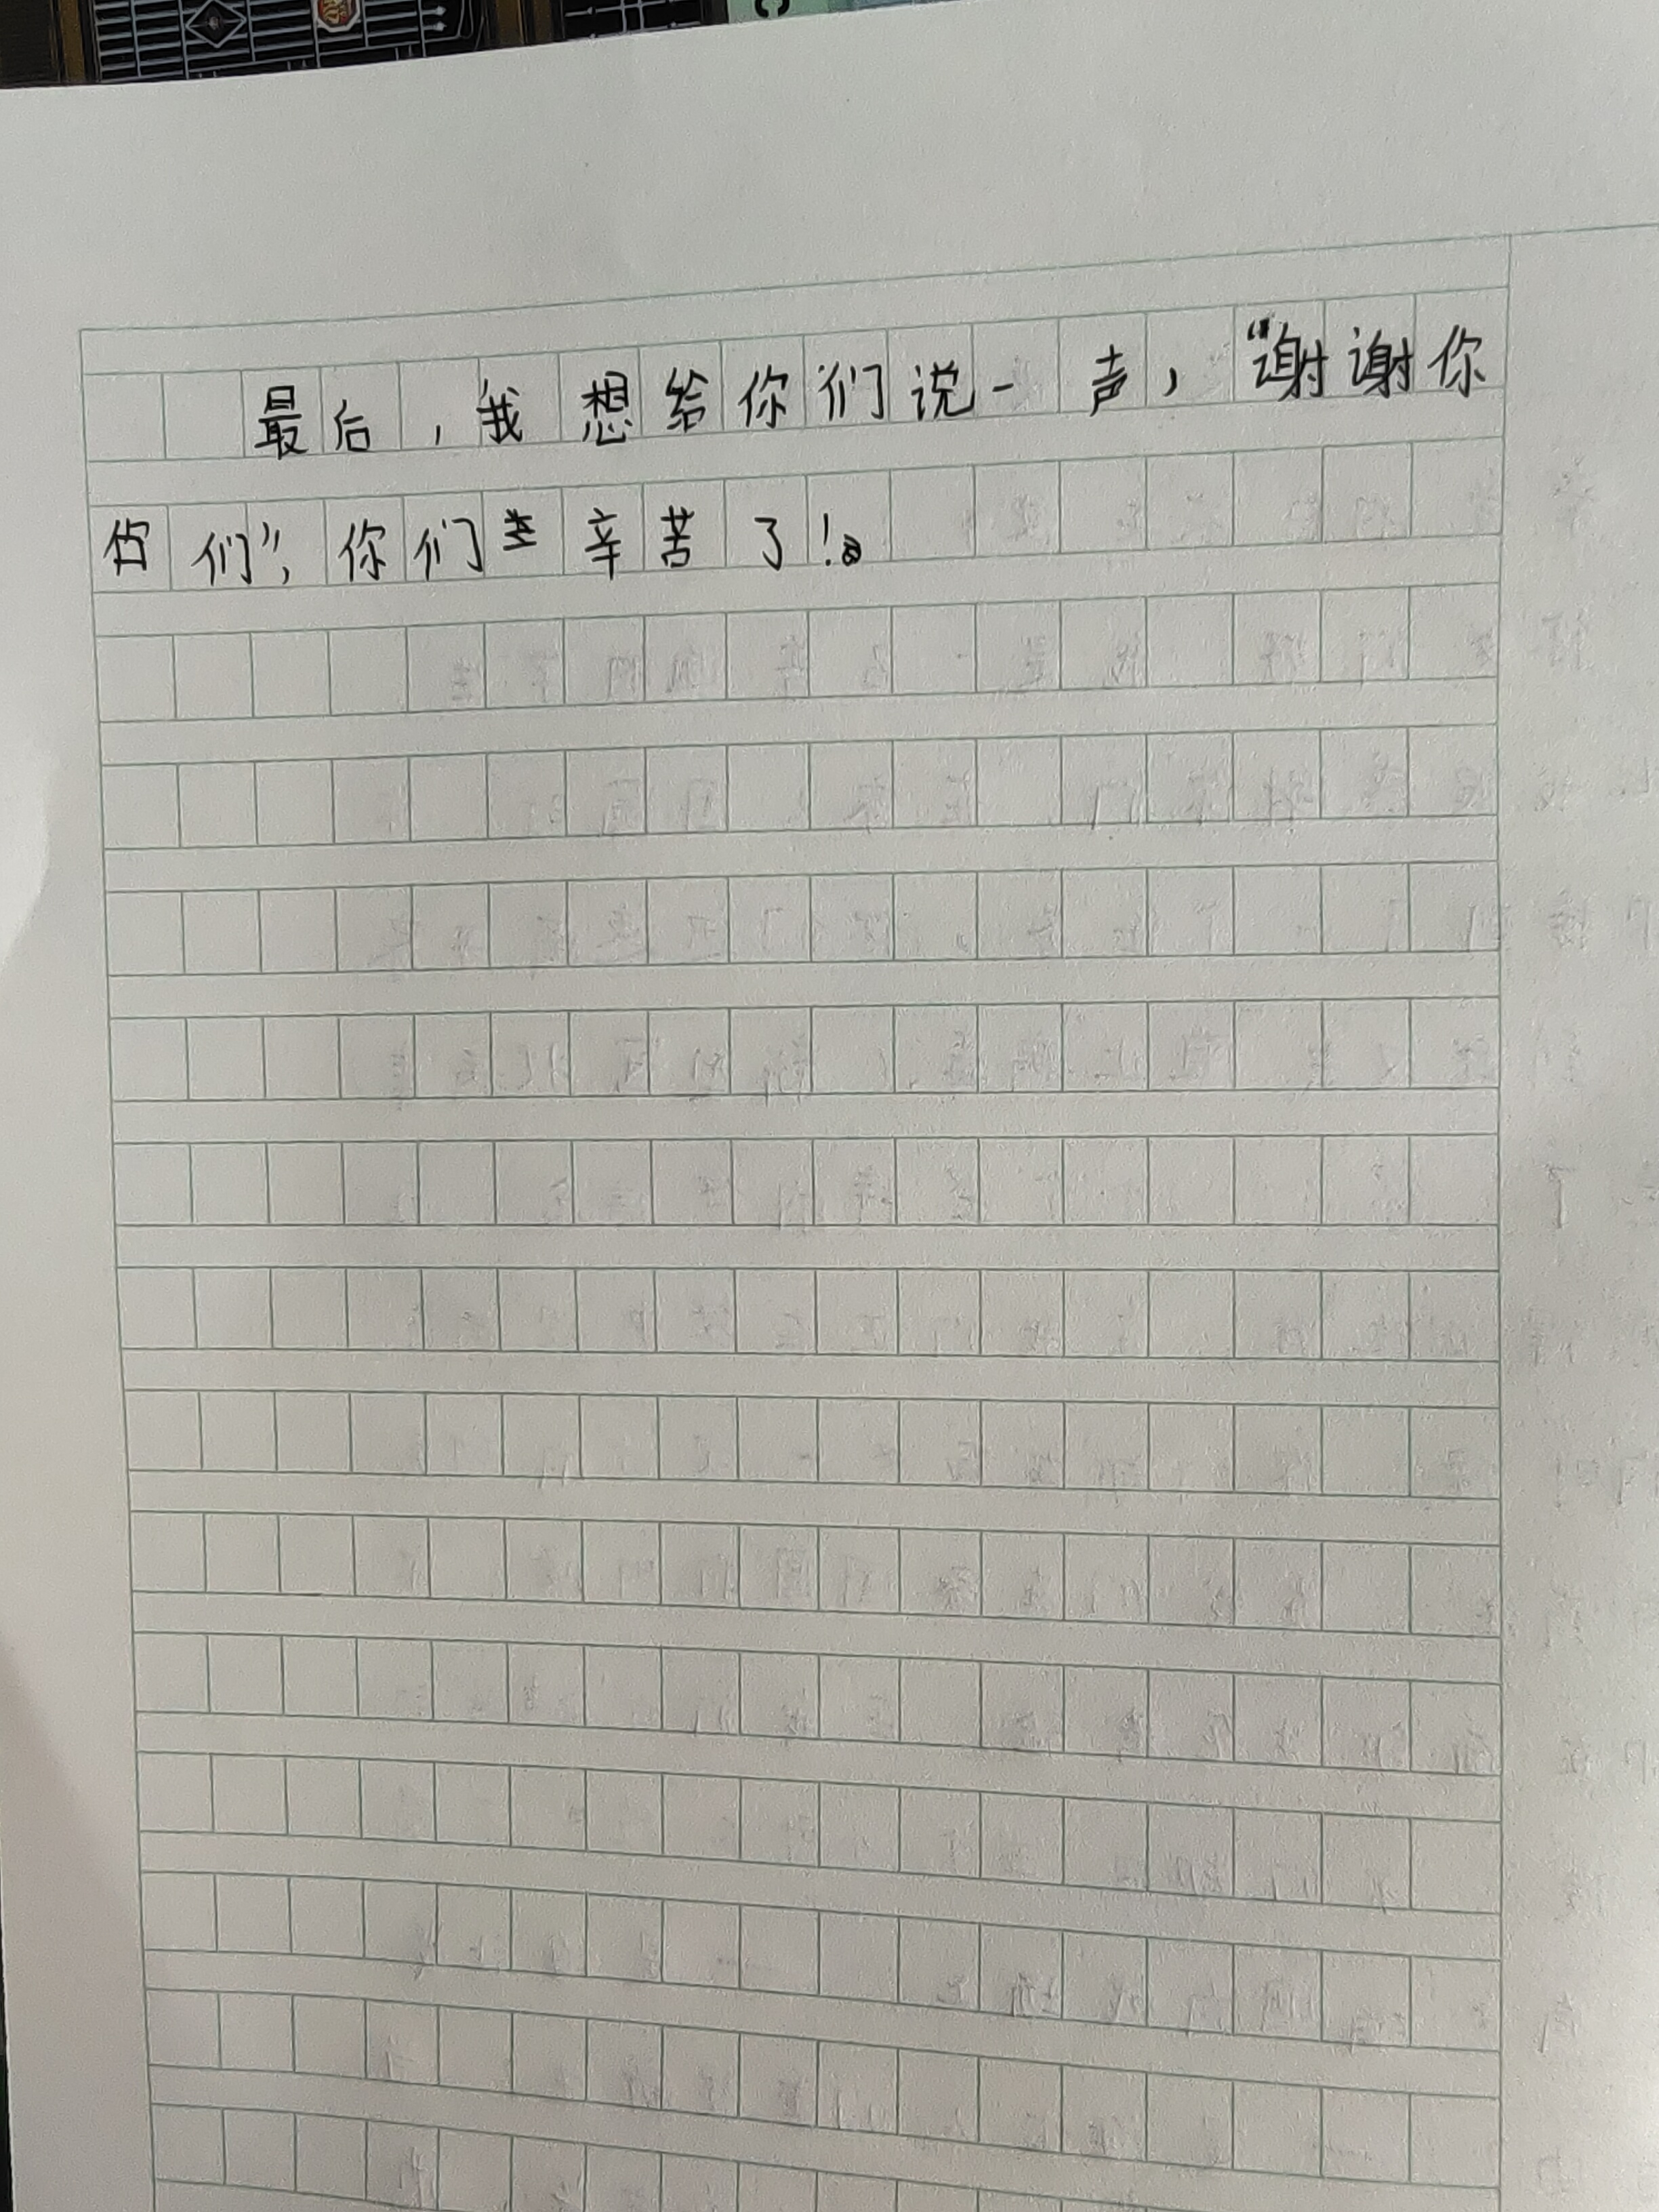 最后，我想给你们说一声，“谢谢你
们”，你们辛苦了！